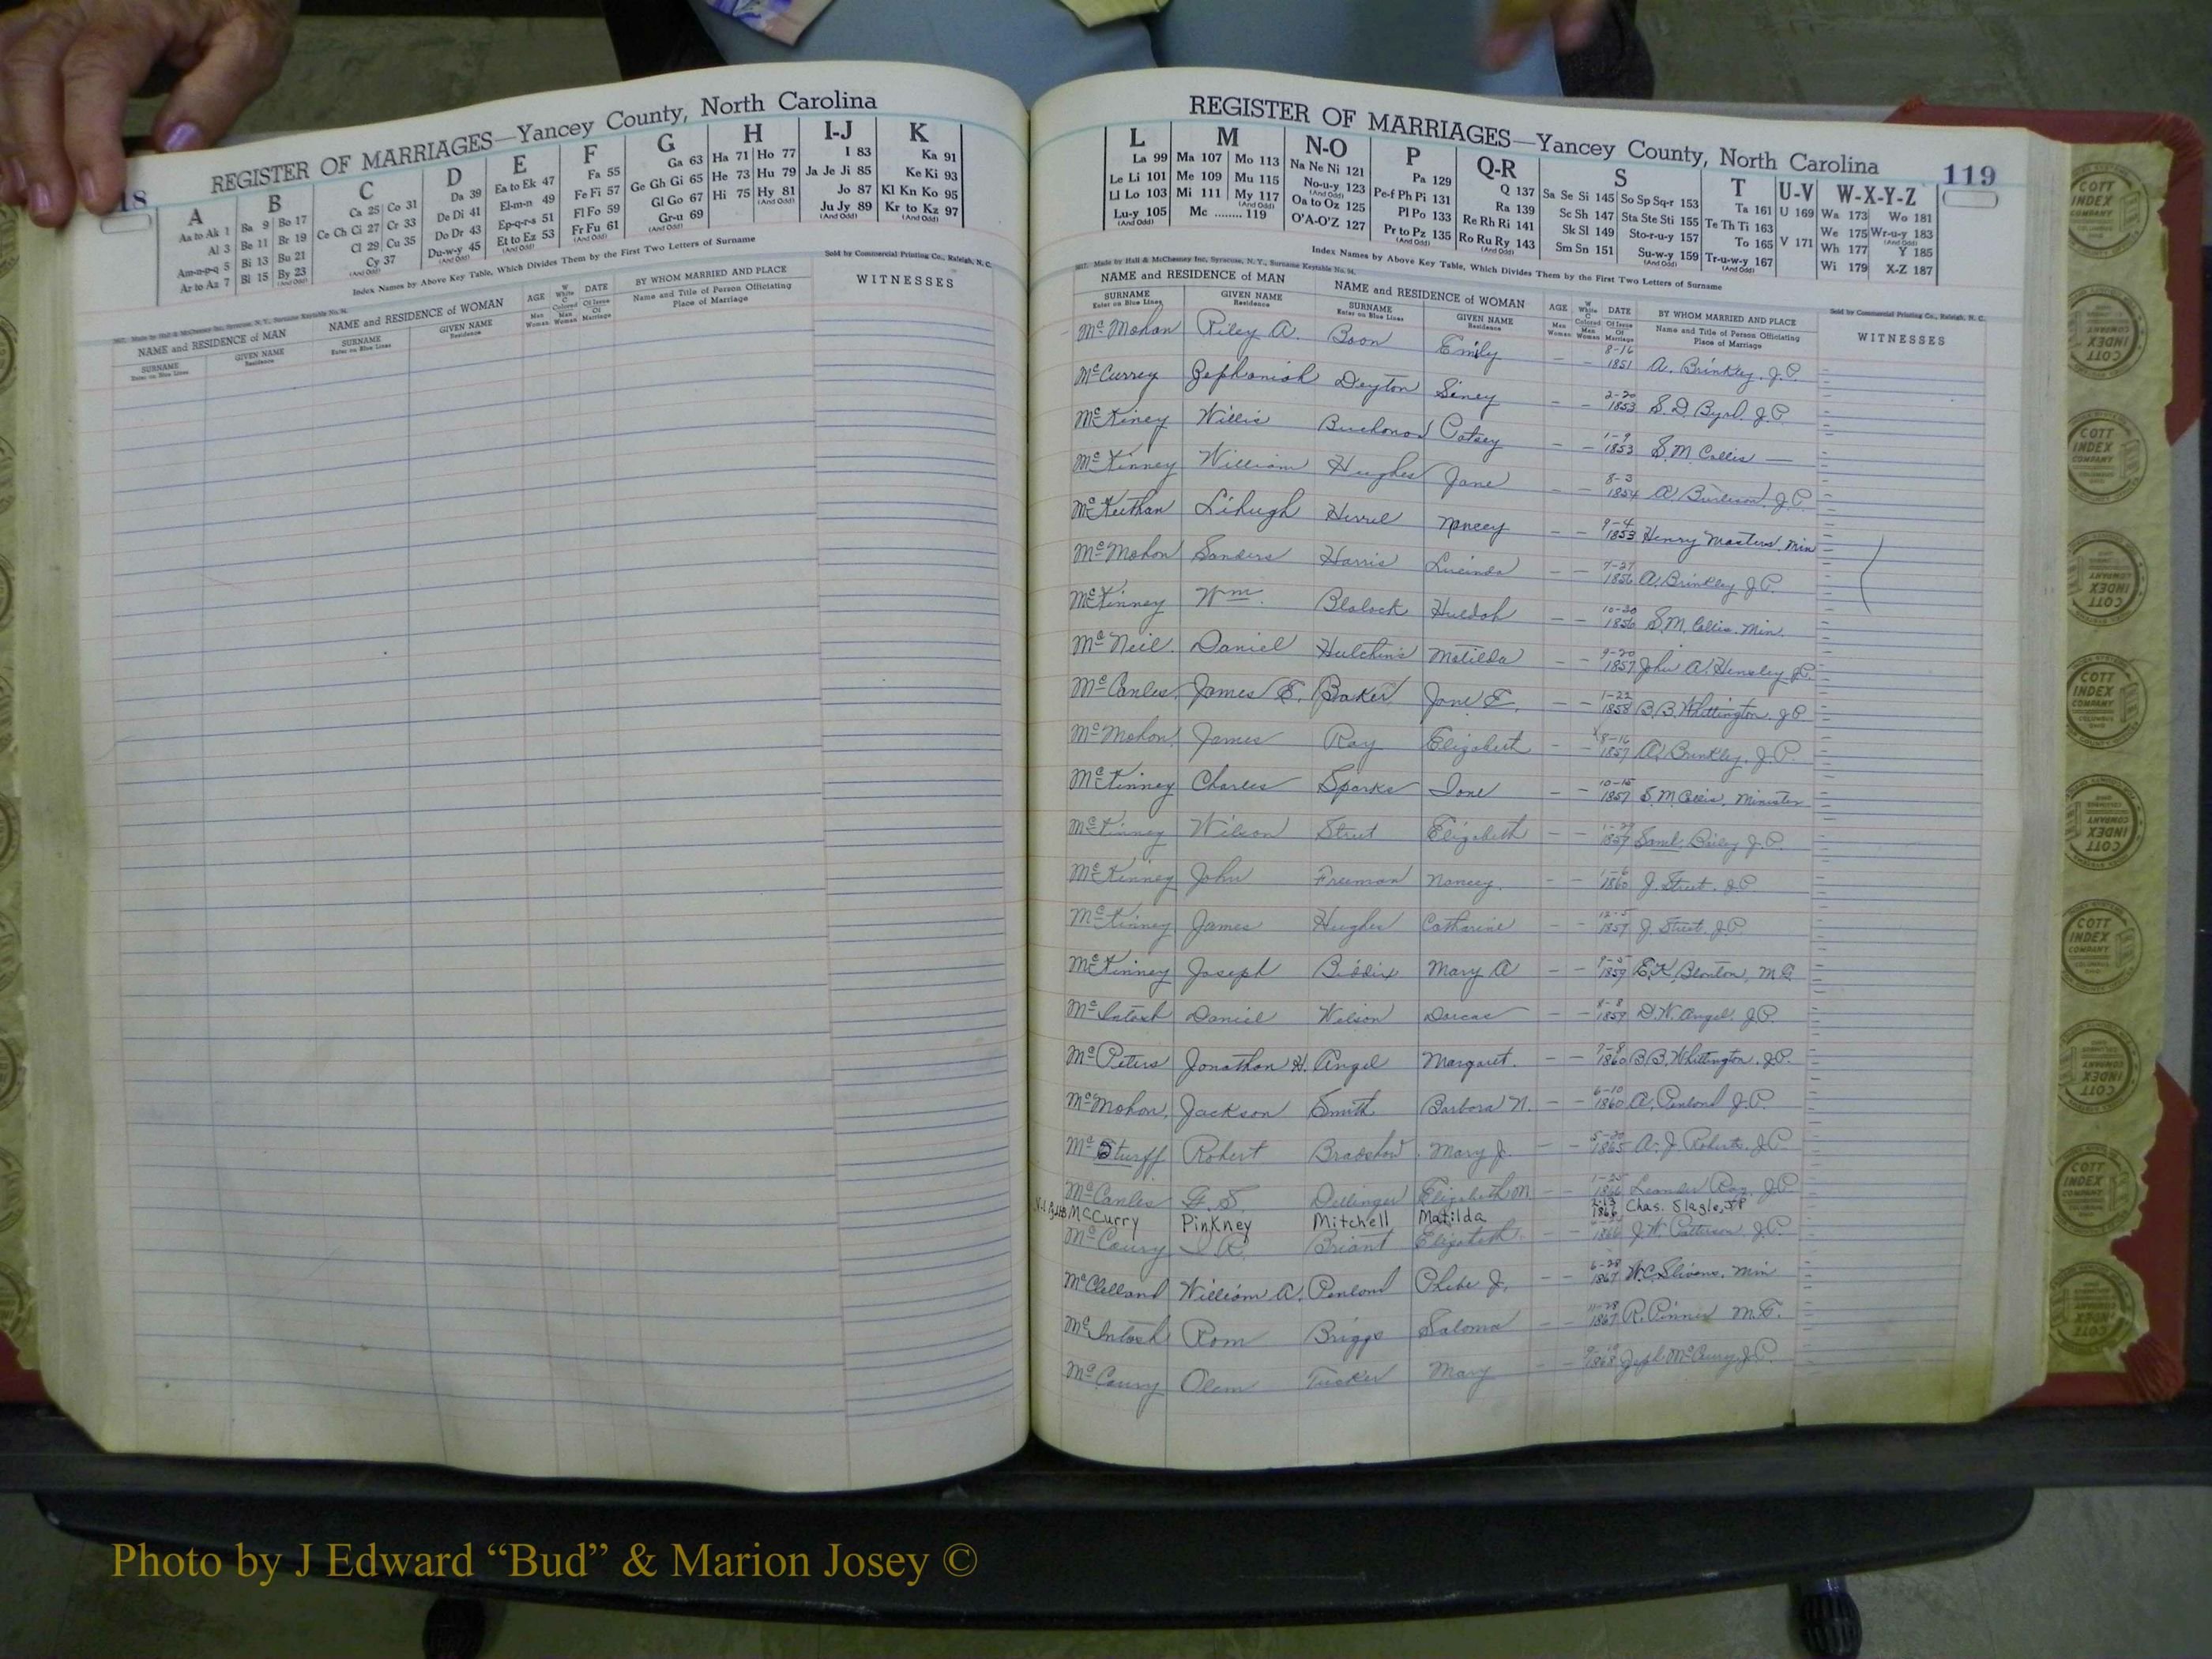 REGISTER OF MARRIAGES—Yancey County, North Carolina
A B C D E F G H I-J K
Aa to Ak 1 Ba 9 Bo 17 Ca 25 Co 31 Da 39 Ea to Ek 47 Fa 55 Ga 63 Ha 71 Ho 77 I 83 Ka 91
Al 3 Be 11 Br 19 Ce Ch Ci 27 Cr 33 De Di 41 El-m-n 49 Fe Fi 57 Ge Gh Gi 65 He 73 Hu 79 Ja Je Ji 85 Ke Ki 93
Am-n-p-q 5 Bi 13 Bu 21 Cl 29 Cu 35 Do Dr 43 Ep-q-r-s 51 Fl Fo 59 Gl Go 67 Hi 75 Hy 81 Jo 87 Kl Kn Ko 95
Ar to Az 7 Bl 15 By 23 Cy 37 Du-w-y 45 Et to Ez 53 Fr Fu 61 Gr-u 69 (And Odd) Ju Jy 89 Kr to Kz 97
Index Names by Above Key Table, Which Divides Them by the First Two Letters of Surname
Sold by Commercial Printing Co., Raleigh, N. C.
NAME and RESIDENCE of MAN NAME and RESIDENCE of WOMAN AGE DATE BY WHOM MARRIED AND PLACE WITNESSES
SURNAME GIVEN NAME SURNAME GIVEN NAME Name and Title of Person Officiating
Enter on Blue Lines Residence Enter on Blue Lines Residence Place of Marriage
REGISTER OF MARRIAGES—Yancey County, North Carolina 119
L M N-O P Q-R S T U-V W-X-Y-Z
La 99 Ma 107 Mo 113 Na Ne Ni 121 Pa 129 Q 137 Sa Se Si 145 So Sp Sq-r 153 Ta 161 U 169 Wa 173 Wo 181
Le Li 101 Me 109 Mu 115 No-u-y 123 Pe-f Ph Pi 131 Ra 139 Sc Sh 147 Sta Ste Sti 155 Te Th Ti 163 We 175 Wr-u-y 183
Ll Lo 103 Mi 111 My 117 Oa to Oz 125 Pl Po 133 Re Rh Ri 141 Sk Sl 149 Sto-r-u-y 157 To 165 V 171 Wh 177 Y 185
Lu-y 105 Mc 119 O'A-O'Z 127 Pr to Pz 135 Ro Ru Ry 143 Sm Sn 151 Su-w-y 159 Tr-u-w-y 167 Wi 179 X-Z 187
Index Names by Above Key Table, Which Divides Them by the First Two Letters of Surname
Made by Hall & McChesney Inc, Syracuse, N. Y., Surname Keytable No. 94.
Sold by Commercial Printing Co., Raleigh, N. C.
NAME and RESIDENCE of MAN NAME and RESIDENCE of WOMAN AGE DATE BY WHOM MARRIED AND PLACE WITNESSES
SURNAME GIVEN NAME SURNAME GIVEN NAME Name and Title of Person Officiating
Enter on Blue Lines Residence Enter on Blue Lines Residence Place of Marriage
McMahan Riley A. Boon Emily — — 8-16 1851 A. Brinkley, J.P.
McCurrey Zephaniah Deyton Siney — — 2-20 1853 S. D. Byrd. J.P.
McKiney Willis Buchanan Patsey — — 1-9 1853 S. M. Collis
McKinney William Hughes Jane — — 8-3 1854 A. Burleson, J.P.
McKeithan Lihugh Herrel Nancy — — 9-4 1853 Henry Masters, Min
McMahon Sanders Harris Lucinda — — 7-27 1856 A. Brinkley J.P.
McKinney Wm. Blalock Huldah — — 10-30 1856 S. M. Collis. Min.
McNeil Daniel Hutchins Matilda — — 9-20 1857 John A. Hensley J.P.
McCanles James E. Baker Jane E. — — 1-22 1858 B. B. Whittington. J.P.
McMahon James Ray Elizabeth — — 8-16 1857 A. Brinkley, J.P.
McKinney Charles Sparks Ione — — 10-15 1857 S. M. Collis, Minister
McKinney Wilson Street Elizabeth — — 1859 Saml. Briley J.P.
McKinney John Freeman Nancy. — — 1-6 1860 J. Street. J.P.
McKinney James Hughes Catharine — — 12-5 1859 J. Street. J.P.
McKinney Joseph Biddix Mary A — — 1859 E. K. Blanton, M.G.
McIntosh Daniel Wilson Dorcas — — 8-8 1859 D. W. Angel. J.P.
McPeters Jonathan H. Angel Margaret. — — 7-8 1860 B. B. Whittington. J.P.
McMahon, Jackson Smith Barbara N. — — 6-10 1860 A. Penland J.P.
McSturff Robert Bradshaw Mary J. — — 5-20 1865 A. J. Roberts. J.P.
McCanles Dellinger Elizabeth M — — 1-25 1866 Leander Ray. J.P.
McCurry Pinkney Mitchell Matilda 1866 Chas. Slagle, JP
McCoury Briant Elizabeth. — — 1866 J. W. Patterson J.P.
McClelland William A. Penland Phebe J. — — 6-28 1867 Min
McIntosh Rom Briggs Saloma — — 11-28 1867 R. Pinner M.G.
McCoury Olem Tucker Mary — — 1868 Zeph McCurry J.P.
COTT INDEX COMPANY COLUMBUS OHIO
Photo by J Edward “Bud” & Marion Josey ©